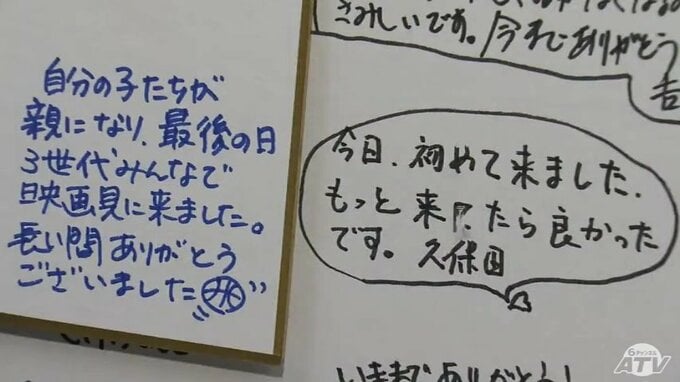 自分の子たちが
親になり、最後の日
3世代みんなで
映画見に来ました。
長い間ありがとう
ございました
さみしいです。今までありがとう
今日、初めて来ました、
もっと来たら良かった
です。久保田
いままでありがとう!
6チャンネル
ATV